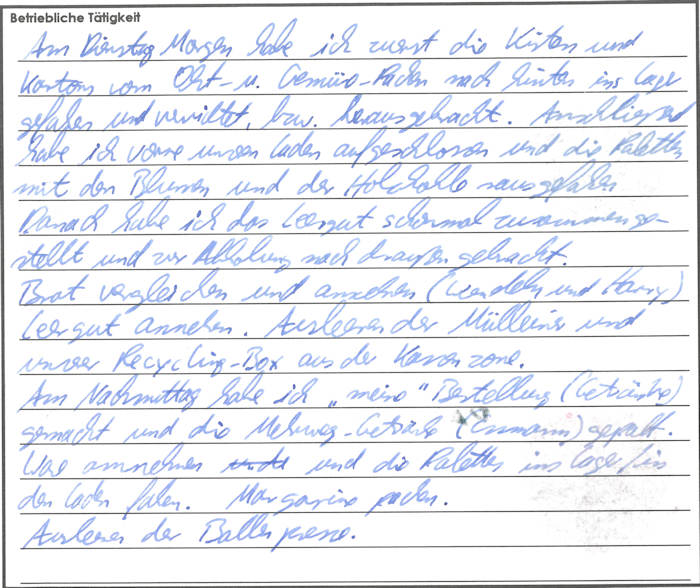 Betriebliche Tätigkeit
Am Dienstag Morgen habe ich zuerst die Kisten und
Kartons vom Obst- u. Gemüse-Packen nach hinten ins Lager
gefahren und bzw. herausgebracht. Anschließend
habe ich vorne unseren Laden aufgeschlossen und die Paletten
mit den Blumen und der Holzkohle rausgefahren
Danach habe ich das Leergut schonmal zusammenge-
stellt und zur Abholung nach draußen gebracht.
Brot vergleichen und annehmen ( und )
Leergut annehmen. Ausleeren der Mülleimer und
unserer Recycling-Box aus der Kassenzone.
Am Nachmittag habe ich „meine" Bestellung (Getränke)
gemacht und die Mehrweg-Getränke ( ) gepackt.
Ware annehmen und die Paletten ins Lager/in
den Laden fahren. Margarine packen.
Ausleeren der Ballenpresse.